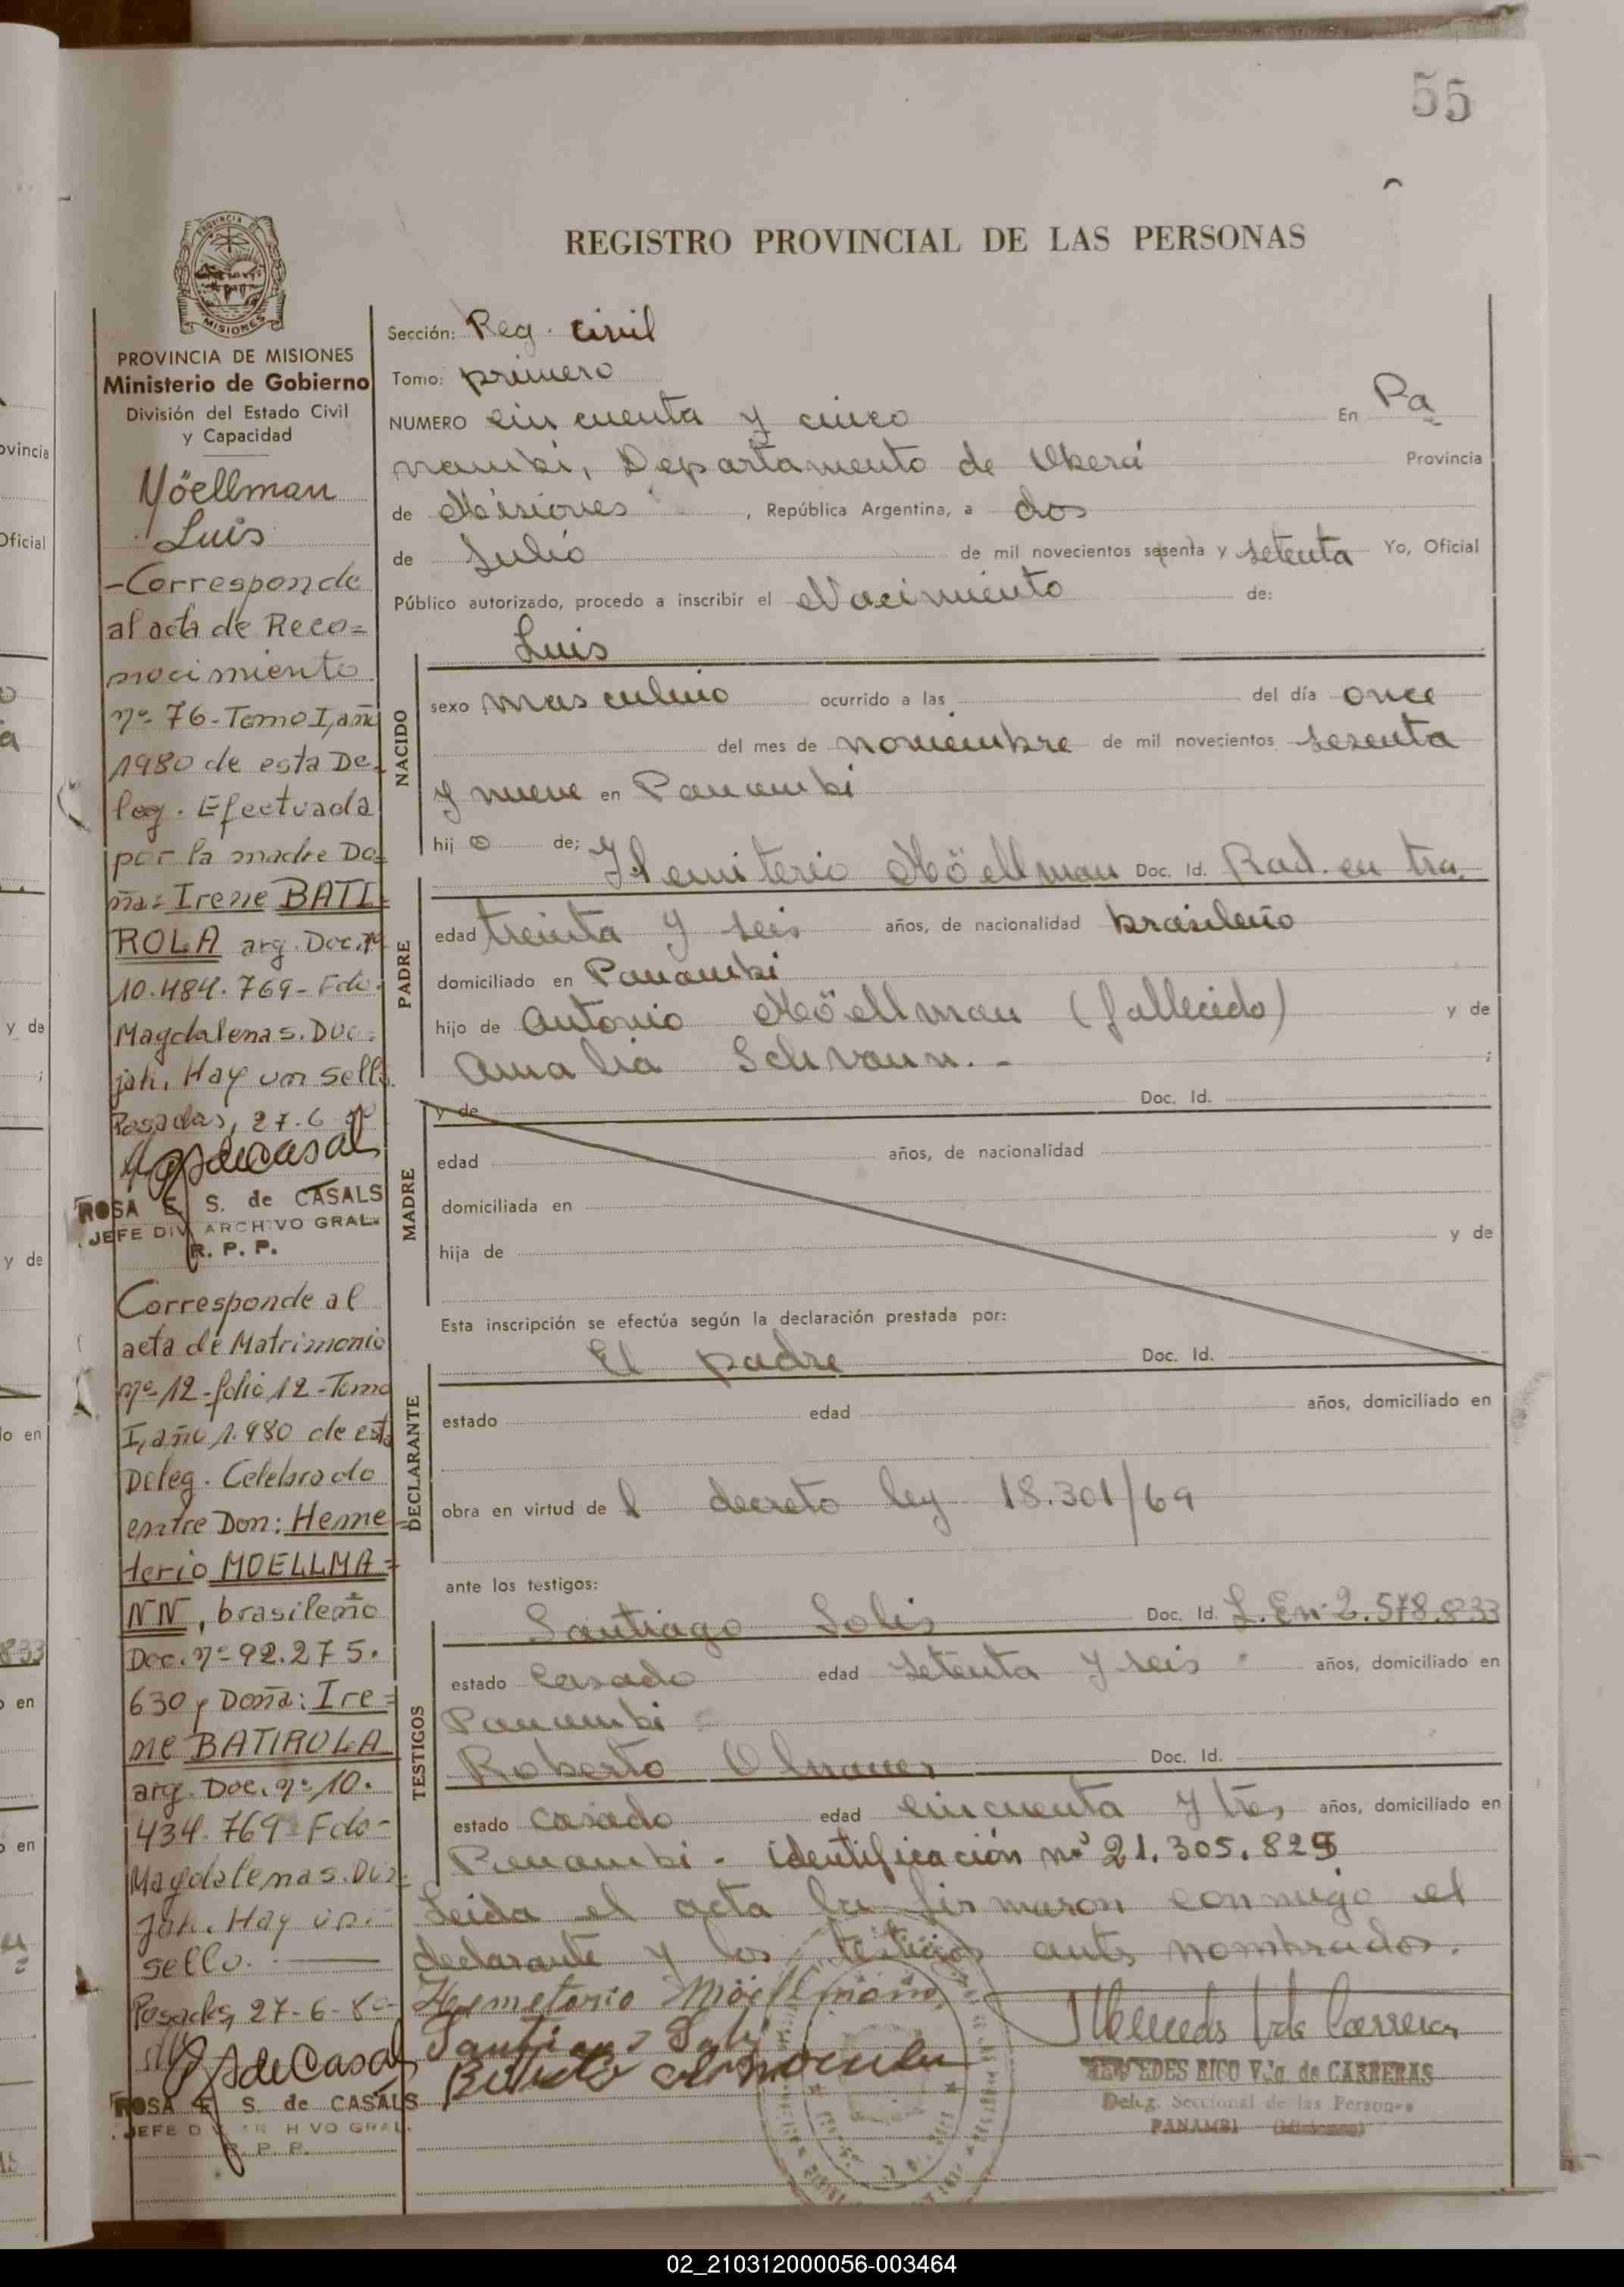 55
REGISTRO PROVINCIAL DE LAS PERSONAS
PROVINCIA DE MISIONES
Ministerio de Gobierno
División del Estado Civil
y Capacidad
Möellman
Luis
-Corresponde
al acta de Reco=
nocimiento
nº- 76-Tomo I, año
1980 de esta De-
leg. Efectuada
por la madre Do=
ña: Irene BATI-
ROLA arg. Doc. nº
10.484.769- Fdo.
Magdalena S. Duc=
jak. Hay un sello.
Posadas, 27.6.80
ROSA E. S. de CASALS
JEFE DIV. ARCHIVO GRAL.
R. P. P.
Corresponde al
acta de Matrimonio
nº-12-folio 12-Tomo
I, año 1.980 de esta
Deleg. Celebrado
entre Don: Heme=
terio MOELLMA=
NN, brasileño
Doc. nº 92.275.
630 y Doña: Ire=
ne BATIROLA
arg. Doc. nº 10.
434.769-Fdo-
Magdalena S. Duc=
jak. Hay un
sello.
Posadas, 27-6-80-
ROSA E. S. de CASALS
JEFE DIV. ARCHIVO GRAL.
R. P. P.
Sección: Reg. civil
Tomo: primero
NUMERO cincuenta y cinco En Pa
nambi, Departamento de Oberá Provincia
de Misiones, República Argentina, a dos
de Julio de mil novecientos sesenta y setenta Yo, Oficial
Público autorizado, procedo a inscribir el Nacimiento de:
Luis
NACIDO
sexo masculino ocurrido a las del día once
del mes de noviembre de mil novecientos sesenta
y nueve en Panambi
hijo de:
Hemiterio Möellman Doc. Id. Rad. en tra.
PADRE
edad treinta y seis años, de nacionalidad brasileño
domiciliado en Panambi
hijo de Antonio Möellman (fallecido) y de
Amalia Schvann.- ;
MADRE
y de Doc. Id.
edad años, de nacionalidad
domiciliada en
hija de y de
Esta inscripción se efectúa según la declaración prestada por:
El padre Doc. Id.
DECLARANTE
estado edad años, domiciliado en
obra en virtud de l decreto ley 18.301/69
ante los testigos:
TESTIGOS
Santiago Solis Doc. Id. L.En 2.578.833
estado Casado edad setenta y seis años, domiciliado en
Panambi
Roberto Doc. Id.
estado casado edad cincuenta y tres años, domiciliado en
Panambi - identificación nº 21.305.825
Leida el acta la firmaron conmigo el
declarante y los testigos antes nombrados.
Hemeterio Möellmann
Santiago Solis
MERCEDES RICO Vda. de CARRERAS
Deleg. Seccional de las Personas
PANAMBI (Misiones)
02_210312000056-003464